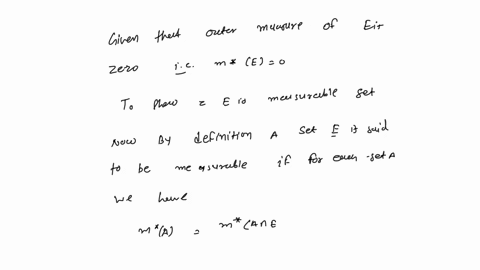 Given that outer measure of E is
zero i.e. m* (E) = 0
To prove = E is measurable set
Now By definition A set E is said
to be measurable if for each set A
we have
m*(A) = m* (A ∩ E